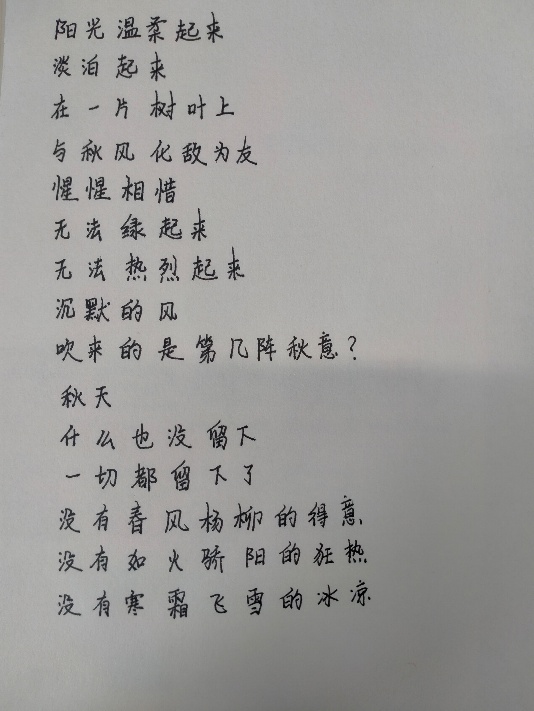 阳光温柔起来
淡泊起来
在一片树叶上
与秋风化敌为友
惺惺相惜
无法绿起来
无法热烈起来
沉默的风
吹来的是第几阵秋意?
秋天
什么也没留下
一切都留下了
没有春风杨柳的得意
没有如火骄阳的狂热
没有寒霜飞雪的冰凉